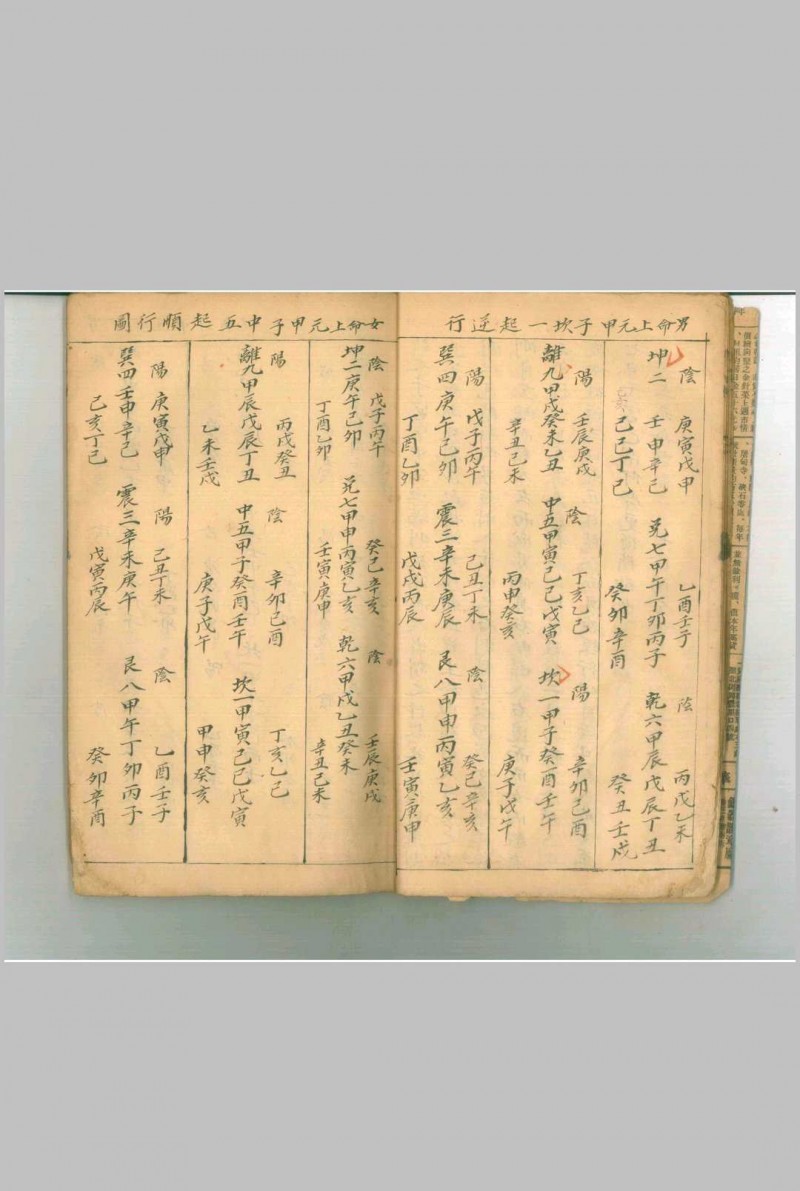 男命上元甲子坎一起逆行
陰 庚寅戊甲 乙酉壬子 陰 丙戌乙未
坤二 壬申辛己 兌七甲午丁卯丙子 乾六甲辰戊辰丁丑
己己丁己 癸卯辛酉 癸丑壬戌
陽 壬辰庚戌 陰 丁亥乙己 陽 辛卯己酉
離九甲戌癸未乙丑 中五甲寅己己戊寅 坎一甲子癸酉壬午
辛丑己未 丙甲癸亥 庚子戊午
陽 戊子丙午 己丑丁未 陰 癸己辛亥
巽四庚午己卯 震三辛未庚辰 艮八甲申丙寅乙亥
丁酉乙卯 戊戌丙辰 壬寅庚申
女命上元甲子中五起順行圖
陰 戊子丙午 癸己辛亥 陰 壬辰庚戌
坤二庚午己卯 兌七甲申丙寅乙亥 乾六甲戌乙丑癸未
丁酉乙卯 壬寅庚申 辛丑己未
陽 丙戌癸丑 陰 辛卯己酉 丁亥乙己
離九甲辰戊辰丁丑 中五甲子癸酉壬午 坎一甲寅己己戊寅
乙未壬戌 庚子戊午 甲申癸亥
陽 庚寅戊申 陽 己丑丁未 陰 乙酉壬子
巽四壬申辛己 震三辛未庚午 艮八甲午丁卯丙子
己亥丁己 戊寅丙辰 癸卯辛酉